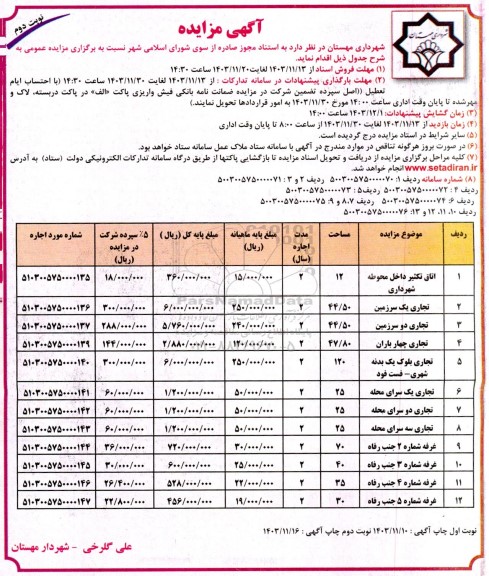 نوبت دوم
آگهی مزایده
شهرداری مهستان
شهرداری مهستان در نظر دارد به استناد مجوز صادره از سوی شورای اسلامی شهر نسبت به برگزاری مزایده عمومی به
شرح جدول ذیل اقدام نماید.
(۱) مهلت فروش اسناد از ۱۴۰۳/۱۱/۱۳ لغایت ۱۴۰۳/۱۱/۲۰ ساعت ۱۴:۳۰
(۲) مهلت بارگذاری پیشنهادات در سامانه تدارکات : از ۱۴۰۳/۱۱/۱۳ لغایت ۱۴۰۳/۱۱/۳۰ ساعت ۱۴:۳۰ (با احتساب ایام
تعطیل ((اصل سپرده تضمین شرکت در مزایده ضمانت نامه بانکی فیش واریزی پاکت «الف» در پاکت دربسته، لاک و
مهرشده تا پایان وقت اداری ساعت ۱۴:۰۰ مورخ ۱۴۰۳/۱۱/۳۰ به امور قراردادها تحویل نمایند.)
(۳) زمان گشایش پیشنهادات: ۱۴۰۳/۱۲/۱ ساعت ۱۴:۰۰
(۴) زمان بازدید از ۱۴۰۳/۱۱/۱۳ لغایت ۱۴۰۳/۱۱/۳۰ از ساعت ۸:۰۰ تا پایان وقت اداری
(۵) سایر شرایط در اسناد مزایده درج گردیده است.
(۶) در صورت بروز هرگونه تناقص در موارد مندرج در آگهی با سامانه ستاد ملاک عمل سامانه ستاد خواهد بود.
(۷) کلیه مراحل برگزاری مزایده از دریافت و تحویل اسناد مزایده تا بازگشایی پاکتها از طریق درگاه سامانه تدارکات الکترونیکی دولت (ستاد) به آدرس
www.setadiran.ir انجام خواهد شد.
(۸) شماره سامانه ردیف ۱: ۵۰۰۳۰۰۵۷۵۰۰۰۰۰۷۰ ردیف ۲ و ۳ : ۵۰۰۳۰۰۵۷۵۰۰۰۰۰۷۱
ردیف ۴ : ۵۰۰۳۰۰۵۷۵۰۰۰۰۰۷۲ ردیف۵ : ۵۰۰۳۰۰۵۷۵۰۰۰۰۰۷۳
ردیف ۶: ۵۰۰۳۰۰۵۷۵۰۰۰۰۰۷۴ ردیف ۸،۷ و ۹: ۵۰۰۳۰۰۵۷۵۰۰۰۰۰۷۵
ردیف ۱۰، ۱۱، ۱۲ و ۱۳: ۵۰۰۳۰۰۵۷۵۰۰۰۰۰۷۶
ردیف موضوع مزایده مساحت مدت اجاره (سال) مبلغ پایه ماهیانه (ریال) مبلغ پایه کل (ریال) ۵٪ سپرده شرکت در مزایده (ریال) شماره مورد اجاره
۱ اتاق تکثیر داخل محوطه شهرداری ۱۲ ۲ ۱۵/۰۰۰/۰۰۰ ۳۶۰/۰۰۰/۰۰۰ ۱۸/۰۰۰/۰۰۰ ۵۱۰۳۰۰۵۷۵۰۰۰۰۱۳۵
۲ تجاری یک سرزمین ۴۴/۵۰ ۲ ۲۵۰/۰۰۰/۰۰۰ ۶/۰۰۰/۰۰۰/۰۰۰ ۳۰۰/۰۰۰/۰۰۰ ۵۱۰۳۰۰۵۷۵۰۰۰۰۱۳۶
۳ تجاری دو سرزمین ۴۴/۵۰ ۲ ۲۴۰/۰۰۰/۰۰۰ ۵/۷۶۰/۰۰۰/۰۰۰ ۲۸۸/۰۰۰/۰۰۰ ۵۱۰۳۰۰۵۷۵۰۰۰۰۱۳۷
۴ تجاری چهار باران ۴۷/۸۰ ۲ ۱۲۰/۰۰۰/۰۰۰ ۲/۸۸۰/۰۰۰/۰۰۰ ۱۴۴/۰۰۰/۰۰۰ ۵۱۰۳۰۰۵۷۵۰۰۰۰۱۳۹
۵ تجاری بلوک یک بدنه شهری- فست فود ۱۲۰ ۲ ۲۵۰/۰۰۰/۰۰۰ ۶/۰۰۰/۰۰۰/۰۰۰ ۳۰۰/۰۰۰/۰۰۰ ۵۱۰۳۰۰۵۷۵۰۰۰۰۱۴۰
۶ تجاری یک سرای محله ۲۵ ۲ ۵۰/۰۰۰/۰۰۰ ۱/۲۰۰/۰۰۰/۰۰۰ ۶۰/۰۰۰/۰۰۰ ۵۱۰۳۰۰۵۷۵۰۰۰۰۱۴۱
۷ تجاری دو سرای محله ۲۵ ۲ ۵۰/۰۰۰/۰۰۰ ۱/۲۰۰/۰۰۰/۰۰۰ ۶۰/۰۰۰/۰۰۰ ۵۱۰۳۰۰۵۷۵۰۰۰۰۱۴۲
۸ تجاری سه سرای محله ۲۵ ۲ ۵۰/۰۰۰/۰۰۰ ۱/۲۰۰/۰۰۰/۰۰۰ ۶۰/۰۰۰/۰۰۰ ۵۱۰۳۰۰۵۷۵۰۰۰۰۱۴۳
۹ غرفه شماره ۲ جنب رفاه ۷۰ ۲ ۳۰/۰۰۰/۰۰۰ ۷۲۰/۰۰۰/۰۰۰ ۳۶/۰۰۰/۰۰۰ ۵۱۰۳۰۰۵۷۵۰۰۰۰۱۴۴
۱۰ غرفه شماره ۳ جنب رفاه ۴۰ ۲ ۲۵/۰۰۰/۰۰۰ ۶۰۰/۰۰۰/۰۰۰ ۳۰/۰۰۰/۰۰۰ ۵۱۰۳۰۰۵۷۵۰۰۰۰۱۴۵
۱۱ غرفه شماره ۴ جنب رفاه ۳۵ ۲ ۲۲/۰۰۰/۰۰۰ ۵۲۸/۰۰۰/۰۰۰ ۲۶/۴۰۰/۰۰۰ ۵۱۰۳۰۰۵۷۵۰۰۰۰۱۴۶
۱۲ غرفه شماره ۵ جنب رفاه ۳۰ ۲ ۱۹/۰۰۰/۰۰۰ ۴۵۶/۰۰۰/۰۰۰ ۲۲/۸۰۰/۰۰۰ ۵۱۰۳۰۰۵۷۵۰۰۰۰۱۴۷
نوبت اول چاپ آگهی : ۱۴۰۳/۱۱/۱۰ نوبت دوم چاپ آگهی : ۱۴۰۳/۱۱/۱۶
علی گلرخی - شهردار مهستان